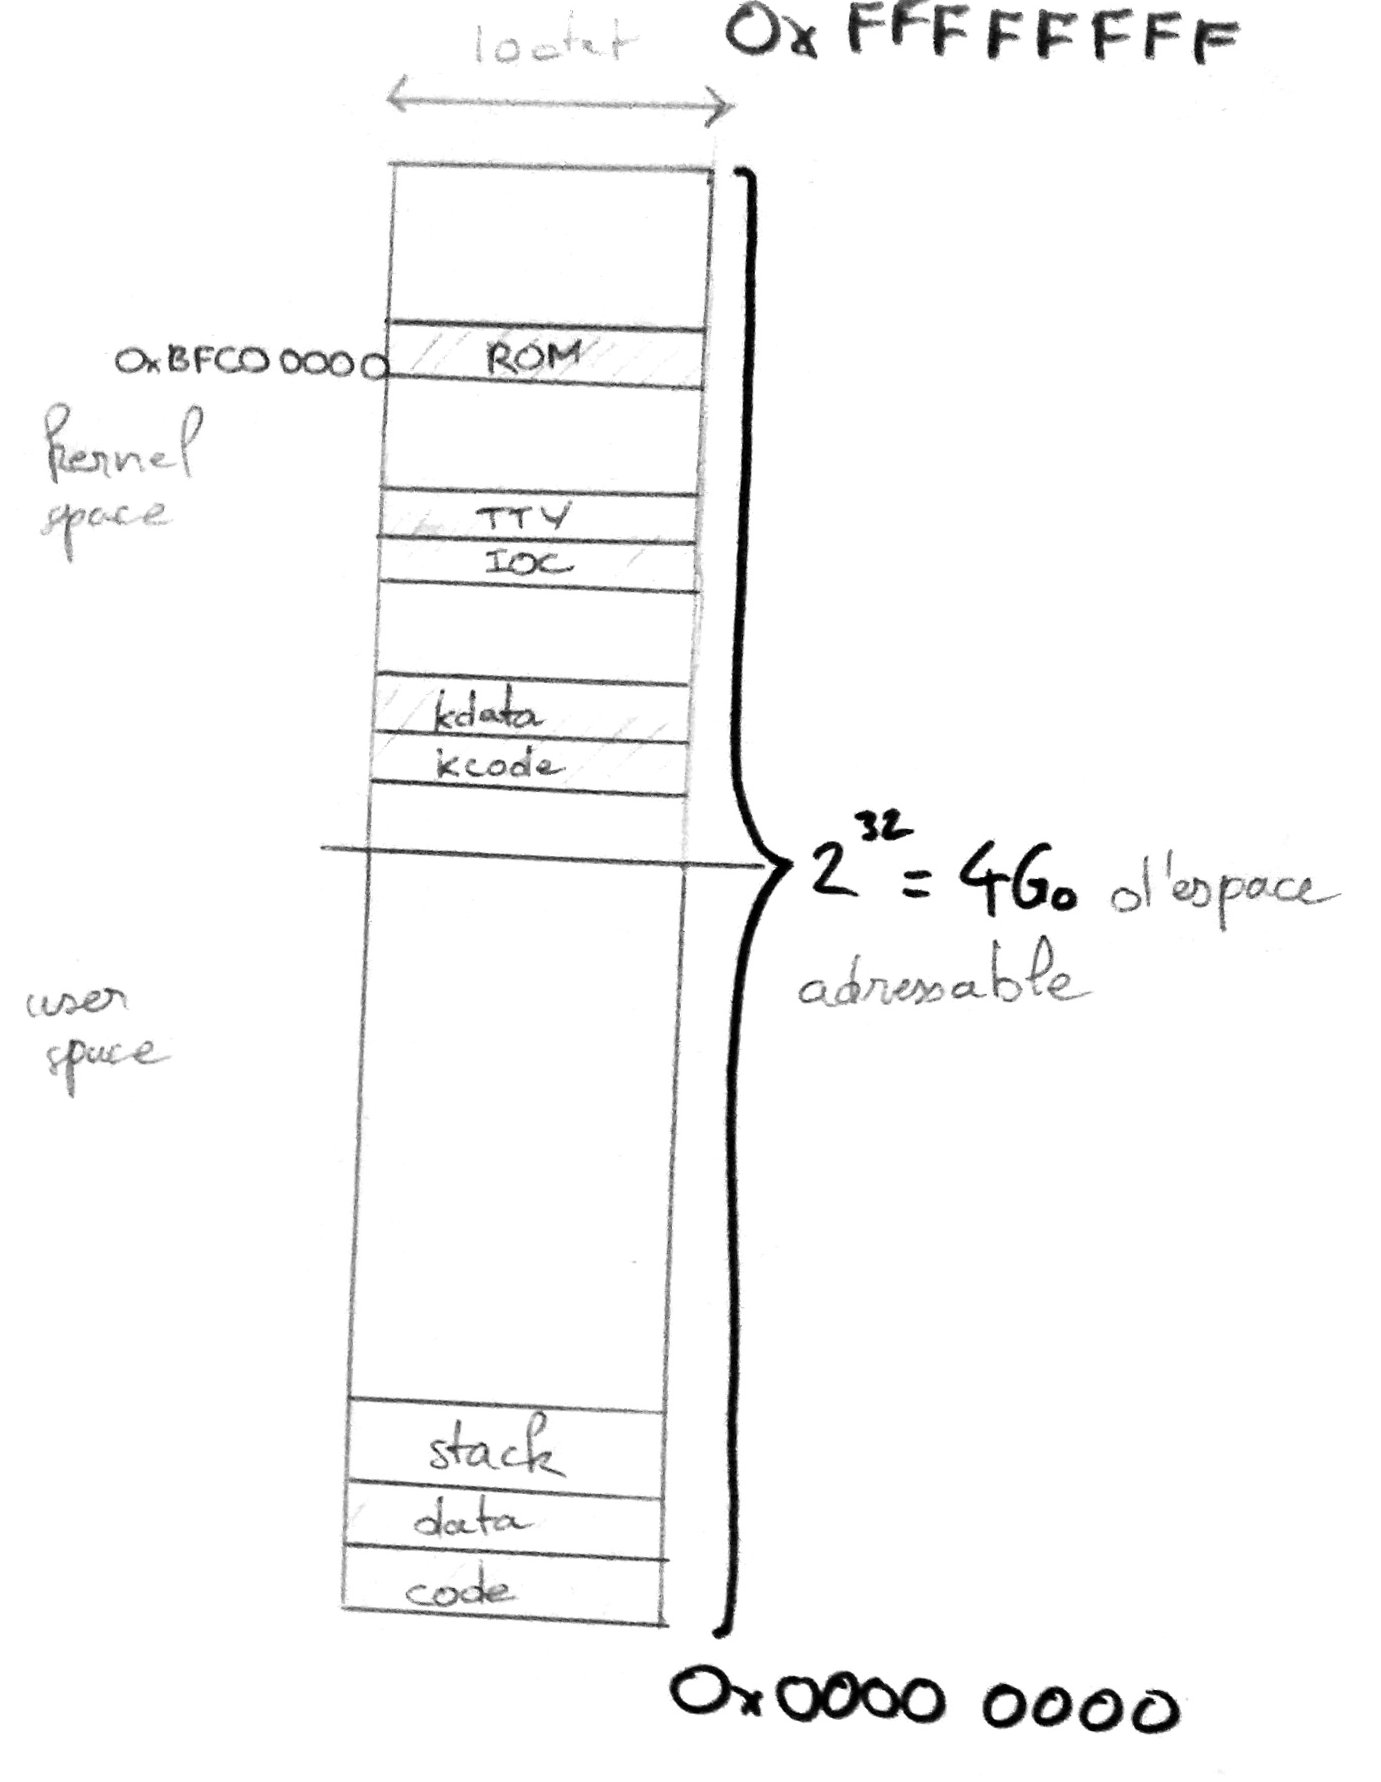 1 octet
0x FFFFFFFF
ROM
0xBFC0 0000
kernel
space
TTY
IOC
kdata
kcode
2^32 = 4Go d'espace
adressable
user
space
stack
data
code
0x0000 0000